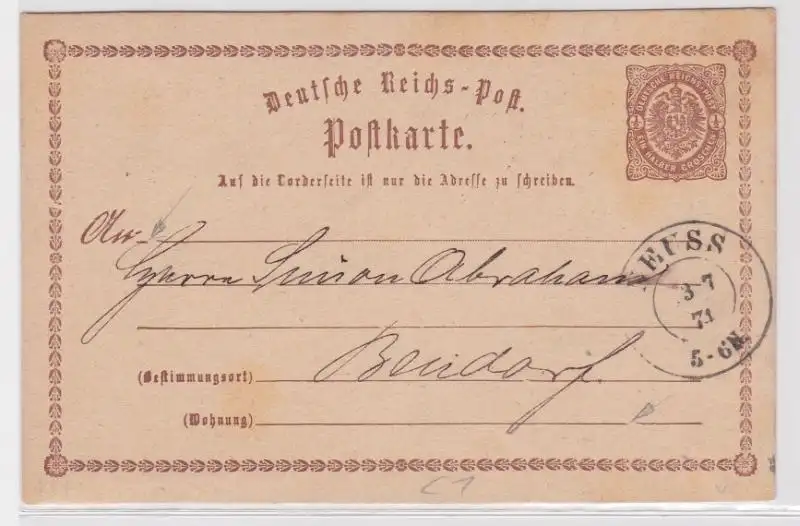 Deutsche Reichs-Post.
Postkarte.
Auf die Vorderseite ist nur die Adresse zu schreiben.
DEUTSCHE REICHS-POST
½ ½
EIN HALBER GROSCHEN
An
Herrn Simon Abraham
NEUSS
3 7
74
5-6N.
Bendorf.
(Bestimmungsort)
(Wohnung)
C1